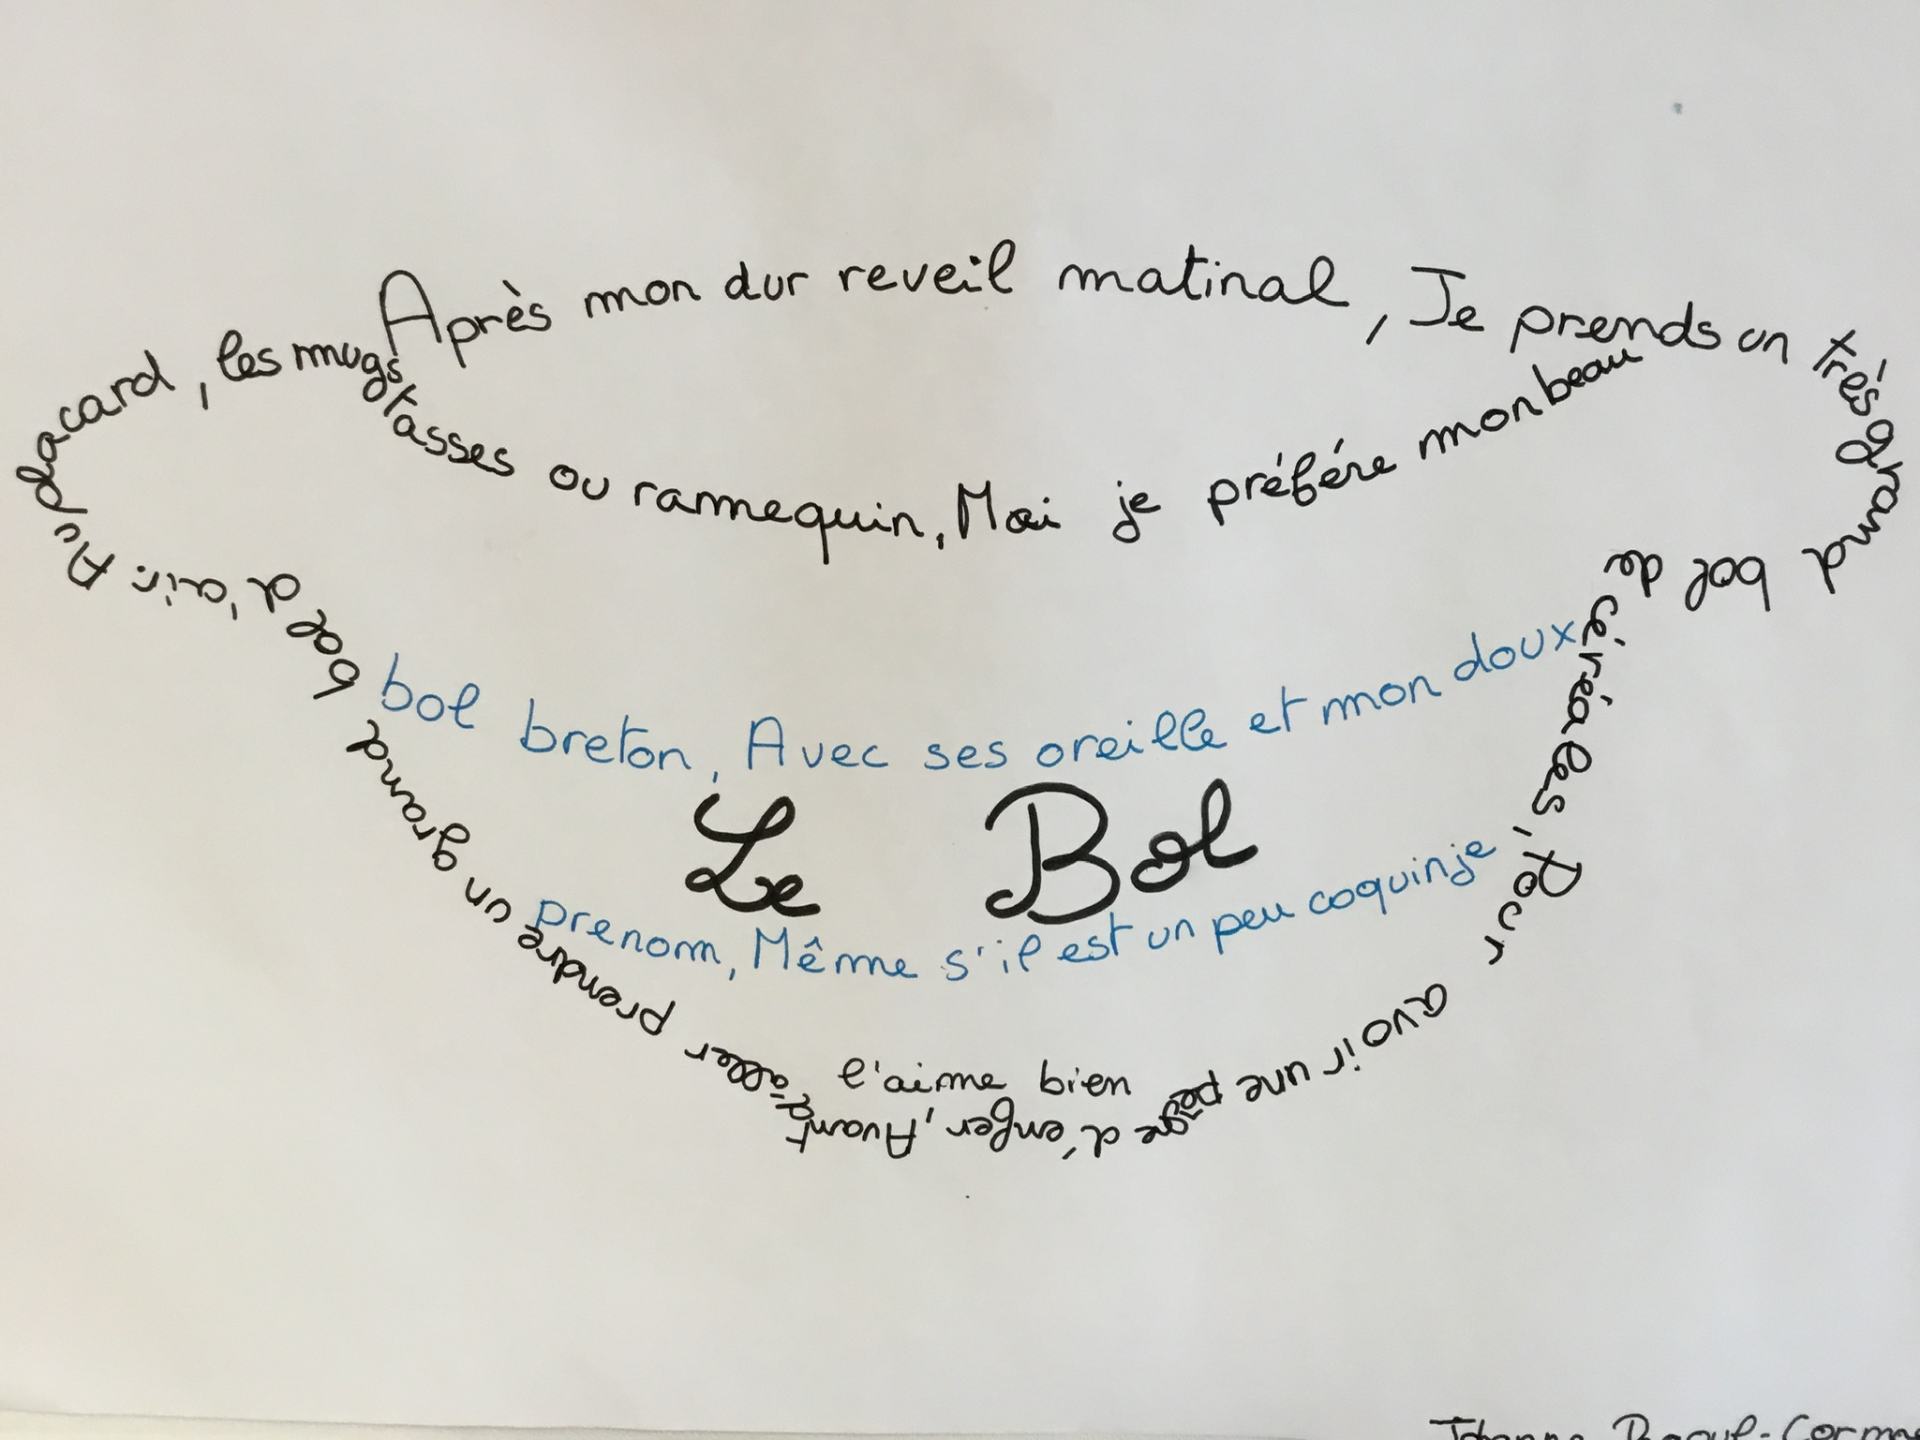 Après mon dur reveil matinal, Je prends un trés grand bol de céréales, Pour avoir une pêigne d'enfer, Avant d'aller prendre un grand bol d'air. Au placard, les mugs
tasses ou rammequin, Moi je préfére mon beau
bol breton, Avec ses oreille et mon doux
Le Bol
prenom, Même s'il est un peu coquin je
l'aime bien
Raoul-